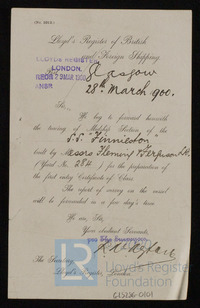 Lloyd's Register of British
and Foreign Shipping
LLOYDS REGISTER
LONDON.
Glasgow
28th March 1900.
Sir,
I beg to forward herewith
the tracing of Midship Section of the
S.S. "Finnieston"
built by Messrs Fleming & Ferguson Ld.
(Yard No. 284) for the preparation of
the first entry Certificate of Class.
The report of survey on the vessel
will be forwarded in a few days time.
I am, Sir,
Your obedient Servant,
The Secretary,
Lloyd's Register, London.
LR
Lloyd's Register
Foundation